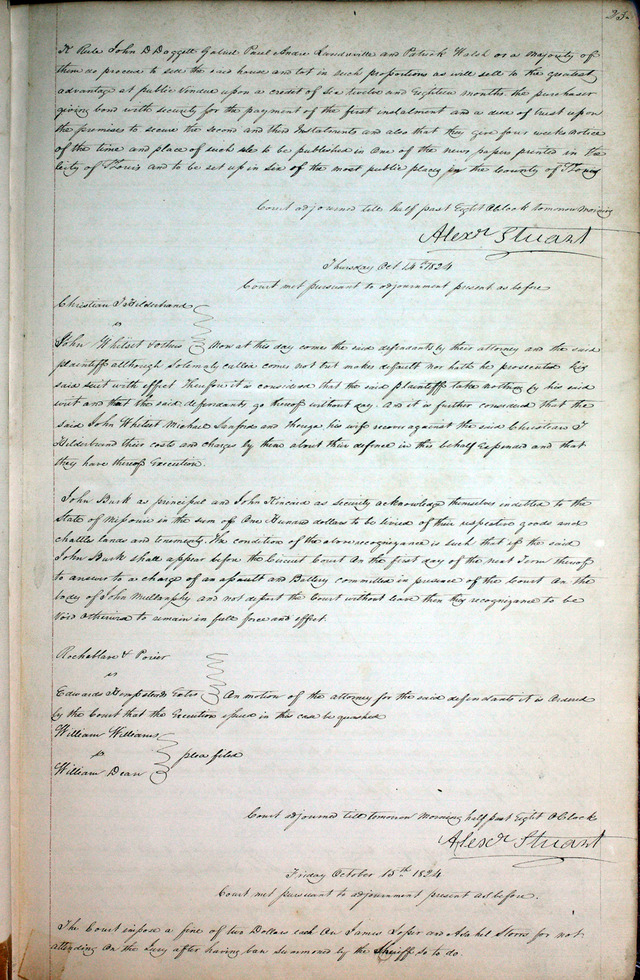 John D Daggett Gabriel Paul Andre Landreville and Patrick Walsh or a majority of
them do proceed to sell the said house and lot in such proportions as will sell to the greatest
advantage at public Vendue upon a credit of Six twelve and Eighteen months. the purchaser
giving bond with security for the payment of the first instalment and a deed of trust upon
the premises to secure the second and third Instalments and also that they give four weeks notice
of the time and place of such sale to be published in One of the news papers printed in the
City of St Louis and to be set up in six of the most public places in the County of St Louis
Court adjourned till half past Eight OClock tomorrow Morning
Alexr Stuart
Thursday Oct 14th 1824
Court met pursuant to adjournment present as before
Christian Hilderbrand
vs
John Whitset & others Now at this day comes the said defendants by their attorney and the said
plaintiff although Solemnly called comes not but makes default nor hath he prosecuted his
said suit with effect Therefore it is considered that the said plaintiff take nothing by his said
writ and that the said defendants go thereof without day. And it is further considered that the
said John Whitset Michael Sanford and his wife recover against the said Christian
Hilderbrand their costs and charges by them about their defence in this behalf Expended and that
they have thereof Execution.
John Burk as principal and John Kincaid as security acknowledge themselves indebted to the
State of Missouri in the sum of One Hundred dollars to be levied of their respective goods and
chattles lands and tenements. The condition of the above recognizance is such that if the said
John Burk shall appear before the Circuit Court On the first day of the next Term thereof
to answer to a charge of an assault and Battery committed in presence of the Court On the
body of John Mullanphy and not depart the Court without leave then this recognizance to be
Void Otherwise to remain in full force and effect.
Rocheblave & Porier
vs
Edward Hempsteads Exters On motion of the attorney for the said defendants it is Ordered
by the Court that the Execution issued in this case be quashed
William Williams
vs plea filed
William Dean
Court adjourned till tomorrow Morning half past Eight OClock
Alexr Stuart
Friday October 15th 1824
Court met pursuant to adjournment present as before.
The Court impose a fine of two Dollars each On James and Asahel Storrs for not
attending On the Jury after having been Summoned by the Sheriff so to do.